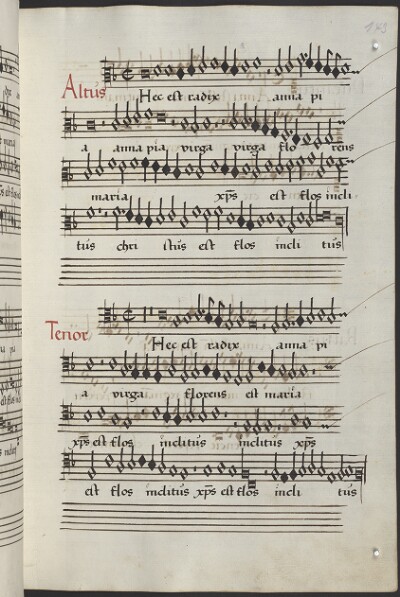 143
Altus
Hec est radix anna pi
a anna pia, virga virga flo rens
maria xp̄s est flos incli
tus chri stus est flos incli tus
Tenor
Hec est radix anna pi
a virga florens est maria
xp̄s est flos inclitus inclitus xp̄s
est flos inclitus xp̄s est flos incli tus